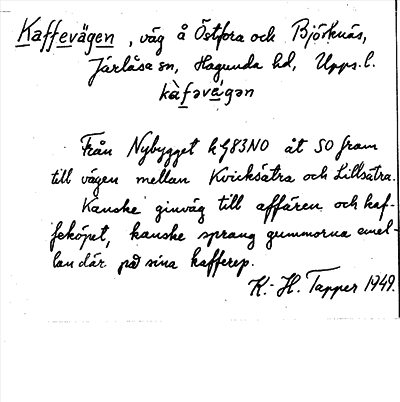 Kaffevägen, väg å Östfora och Björknäs,
Järlåsa sn, Hagunda hd, Upps. l.
kàfəvá̤gən
Från Nybygget k G83NO åt SO fram
till vägen mellan Kvicksätra och Lillsätra.
Kanske ginväg till affären och kaf-
feköpet, kanske sprang gummorna emel-
lan där på sina kafferep.
K.-H. Tapper 1949.